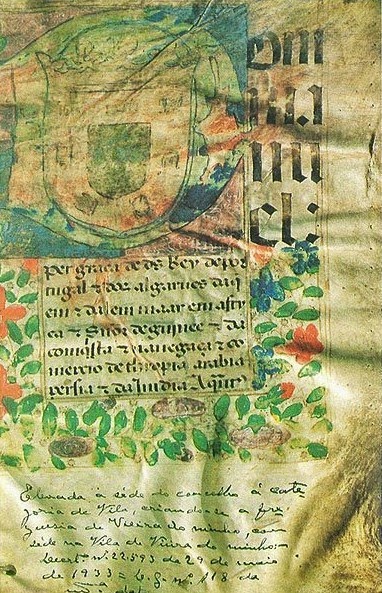 Dom
per graça de ds Rey de por
tugal & dos algarues daq̃
em & dalem maar em afry
ca & Snõr de guinee & da
comq̃sta & nauegaçã & co
mercio de thiopia arabia
persia & da India A q̃m̃
Elevada a séde do concelho á cate
goria de Vila, criando-se a fre
guesia de Vieira do minho, com
séde na Vila de Vieira do minho:-
Decrtº nº 22:593 de 29 de maio
de 1933 = D. G. nº 118 da